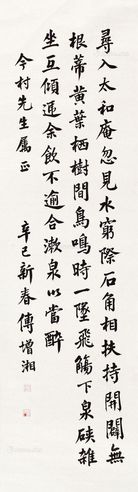 尋入太和庵忽見水窮際石角相扶持開闔無
根蒂黃葉栖樹間鳥鳴時一墜飛觴下泉硤雜
坐互傾遞余飲不逾合漱泉以當醉
今村先生屬正
辛巳新春傅增湘